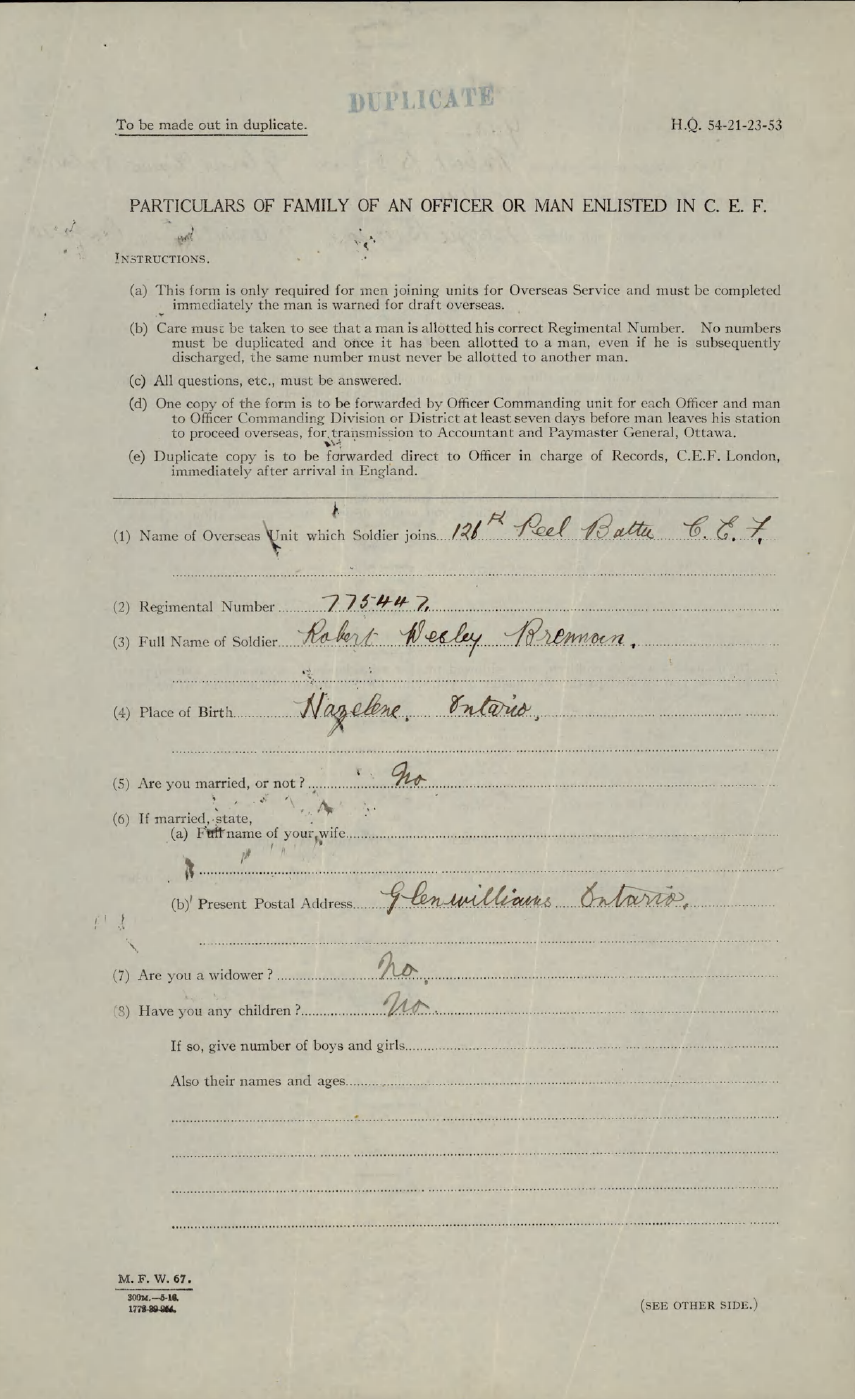 DUPLICATE
To be made out in duplicate.
H.Q. 54-21-23-53
PARTICULARS OF FAMILY OF AN OFFICER OR MAN ENLISTED IN C. E. F.
INSTRUCTIONS.
(a) This form is only required for men joining units for Overseas Service and must be completed
immediately the man is warned for draft overseas.
(b) Care must be taken to see that a man is allotted his correct Regimental Number. No numbers
must be duplicated and once it has been allotted to a man, even if he is subsequently
discharged, the same number must never be allotted to another man.
(c) All questions, etc., must be answered.
(d) One copy of the form is to be forwarded by Officer Commanding unit for each Officer and man
to Officer Commanding Division or District at least seven days before man leaves his station
to proceed overseas, for transmission to Accountant and Paymaster General, Ottawa.
(e) Duplicate copy is to be forwarded direct to Officer in charge of Records, C.E.F. London,
immediately after arrival in England.
(1) Name of Overseas Unit which Soldier joins 126th Peel Battn C. E. F,
(2) Regimental Number 775447.
(3) Full Name of Soldier Robert Wesley Brennan.
(4) Place of Birth Hazelene, Ontario,
(5) Are you married, or not? No
(6) If married, state,
(a) Full name of your wife
(b) Present Postal Address Glenwilliams Ontario,
(7) Are you a widower? No,
(8) Have you any children? No
If so, give number of boys and girls
Also their names and ages
M. F. W. 67.
300M.—5-16.
(SEE OTHER SIDE.)